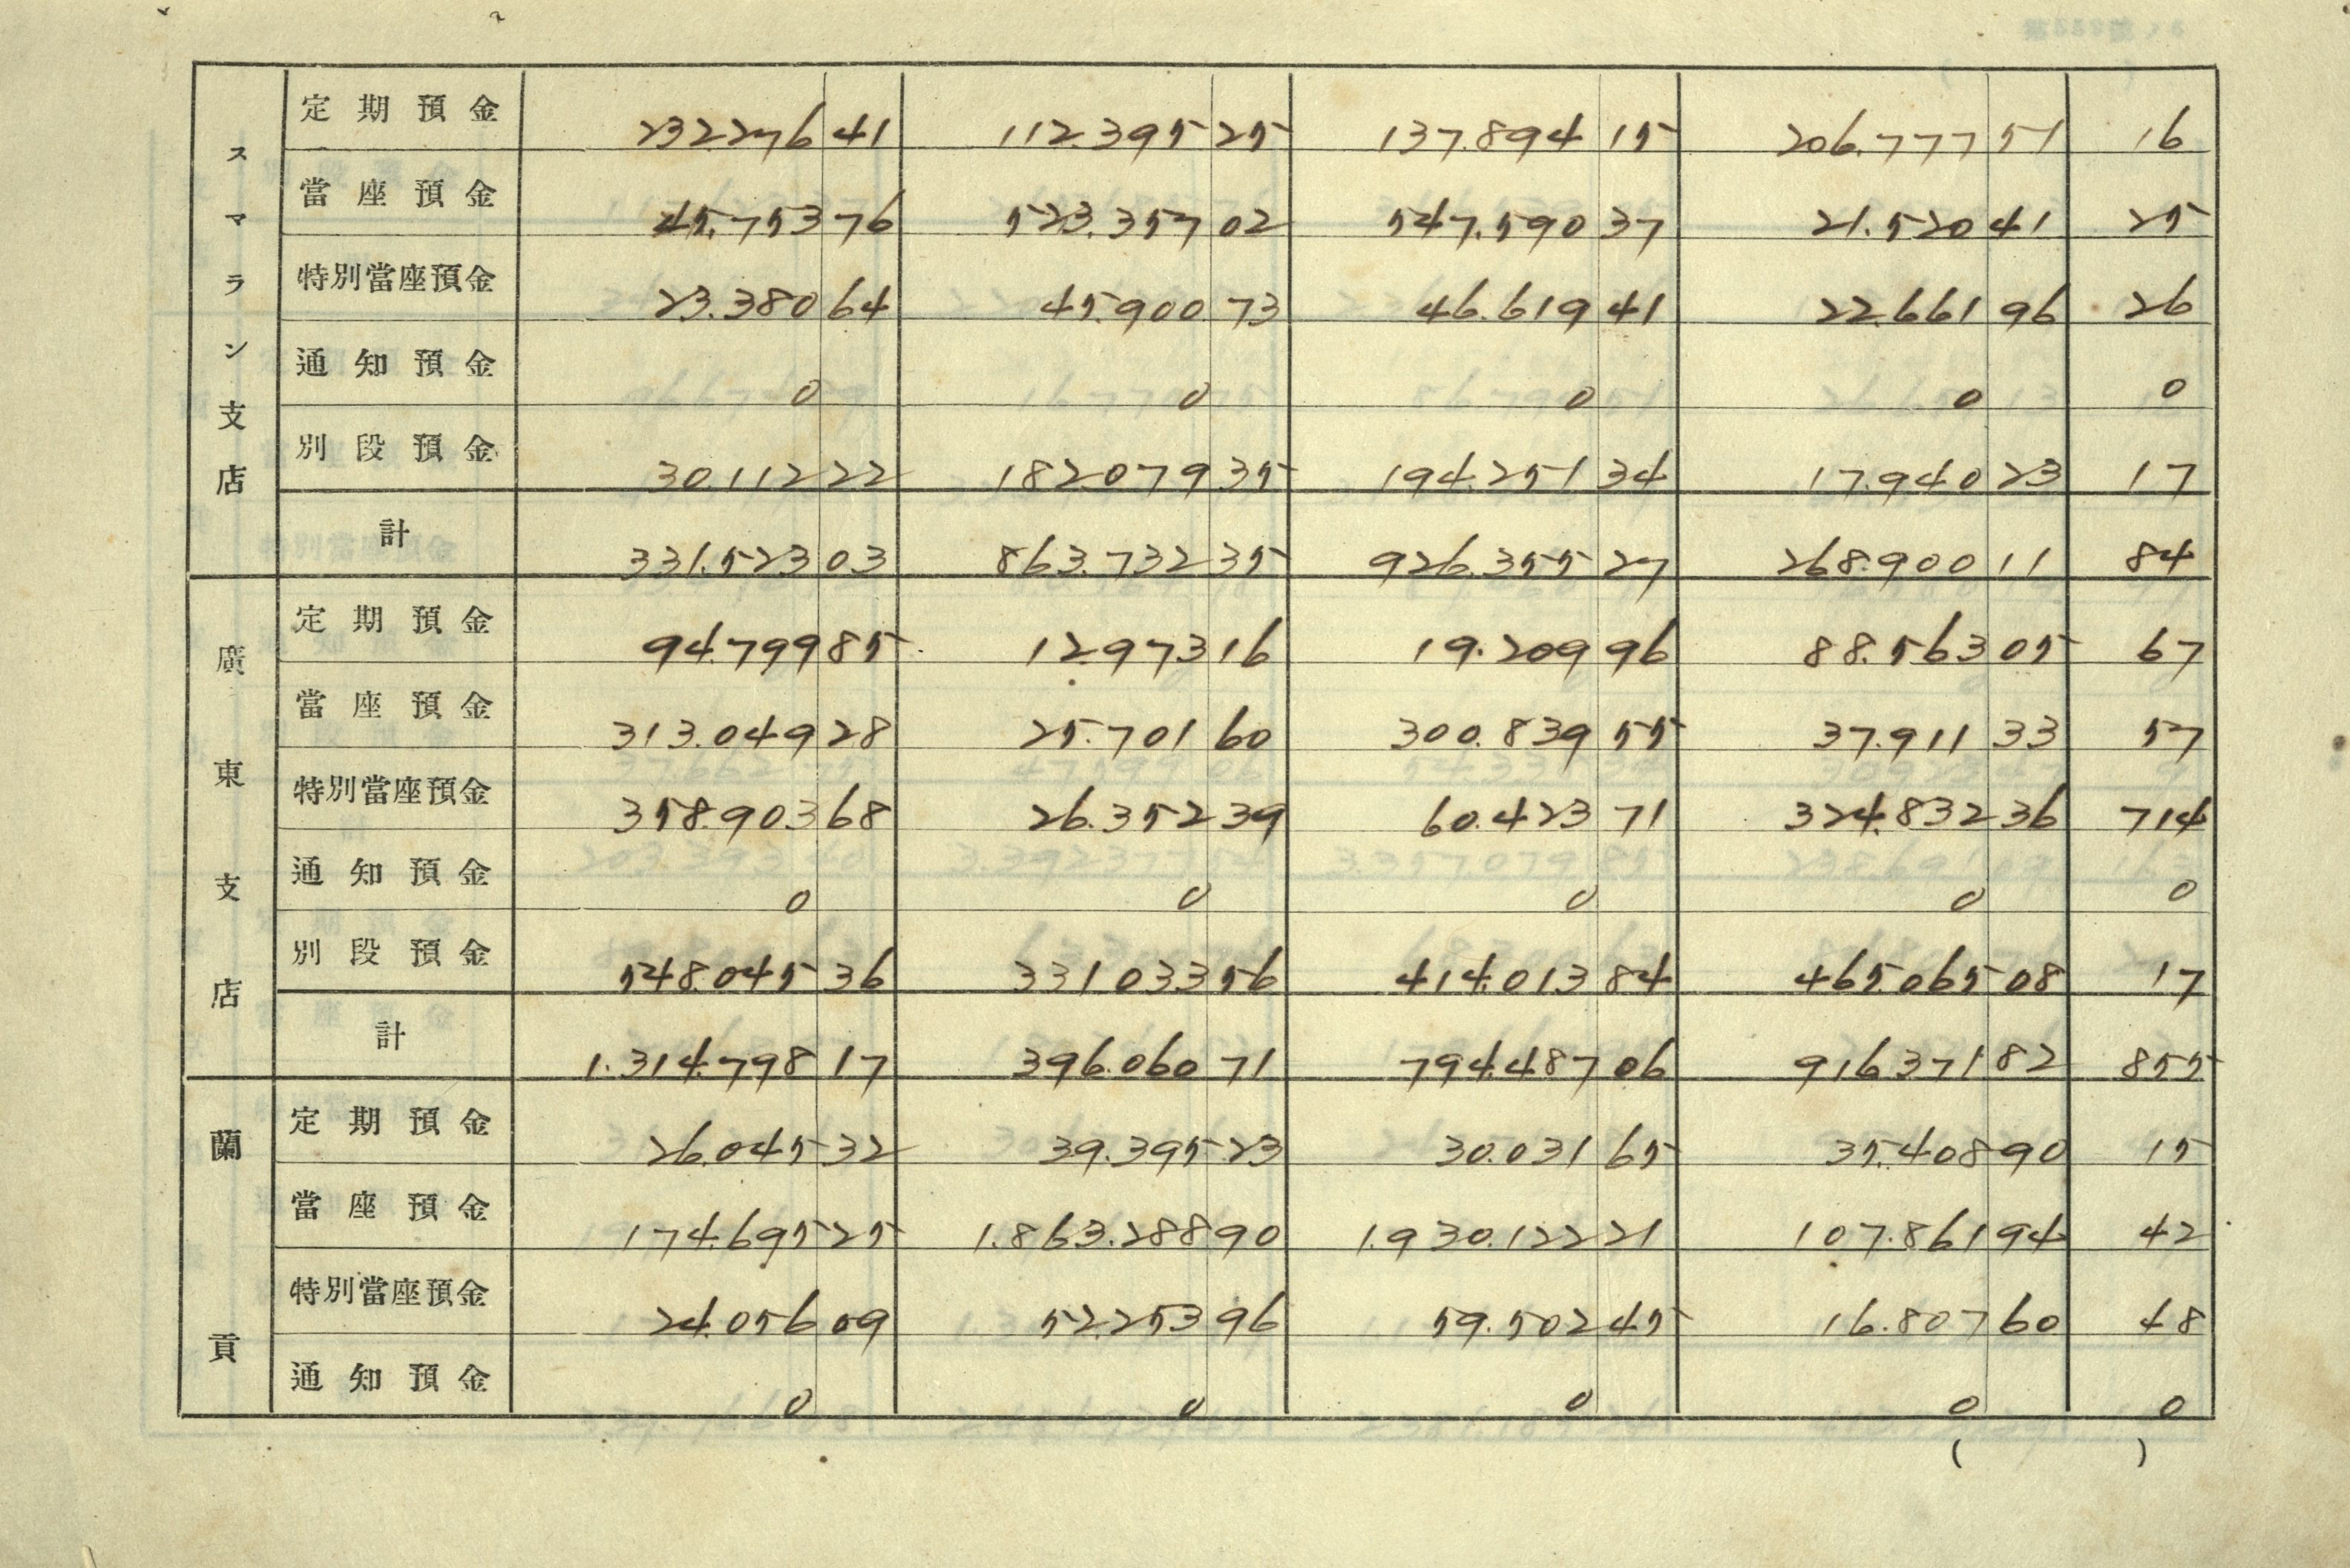 スマラン支店
定期預金 232.276 41 112.395 25 137.894 15 206.777 51 16
當座預金 45.753 76 523.357 02 547.590 37 21.520 41 25
特別當座預金 23.380 64 45.900 73 46.619 41 22.661 96 26
通知預金 0 0 0 0 0
別段預金 30.112 22 182.079 35 194.251 34 17.940 23 17
計 331.523 03 863.732 35 926.355 27 268.900 11 84
廣東支店
定期預金 94.799 85 12.973 16 19.209 96 88.563 05 67
當座預金 313.049 28 25.701 60 300.839 55 37.911 33 57
特別當座預金 358.903 68 26.352 39 60.423 71 324.832 36 714
通知預金 0 0 0 0 0
別段預金 548.045 36 331.033 56 414.013 84 465.065 08 17
計 1.314.798 17 396.060 71 794.487 06 916.371 82 855
蘭貢
定期預金 26.045 32 39.395 23 30.031 65 35.408 90 15
當座預金 174.695 25 1.863.288 90 1.930.122 21 107.861 94 42
特別當座預金 24.056 09 52.253 96 59.502 45 16.807 60 48
通知預金 0 0 0 0 0
( )